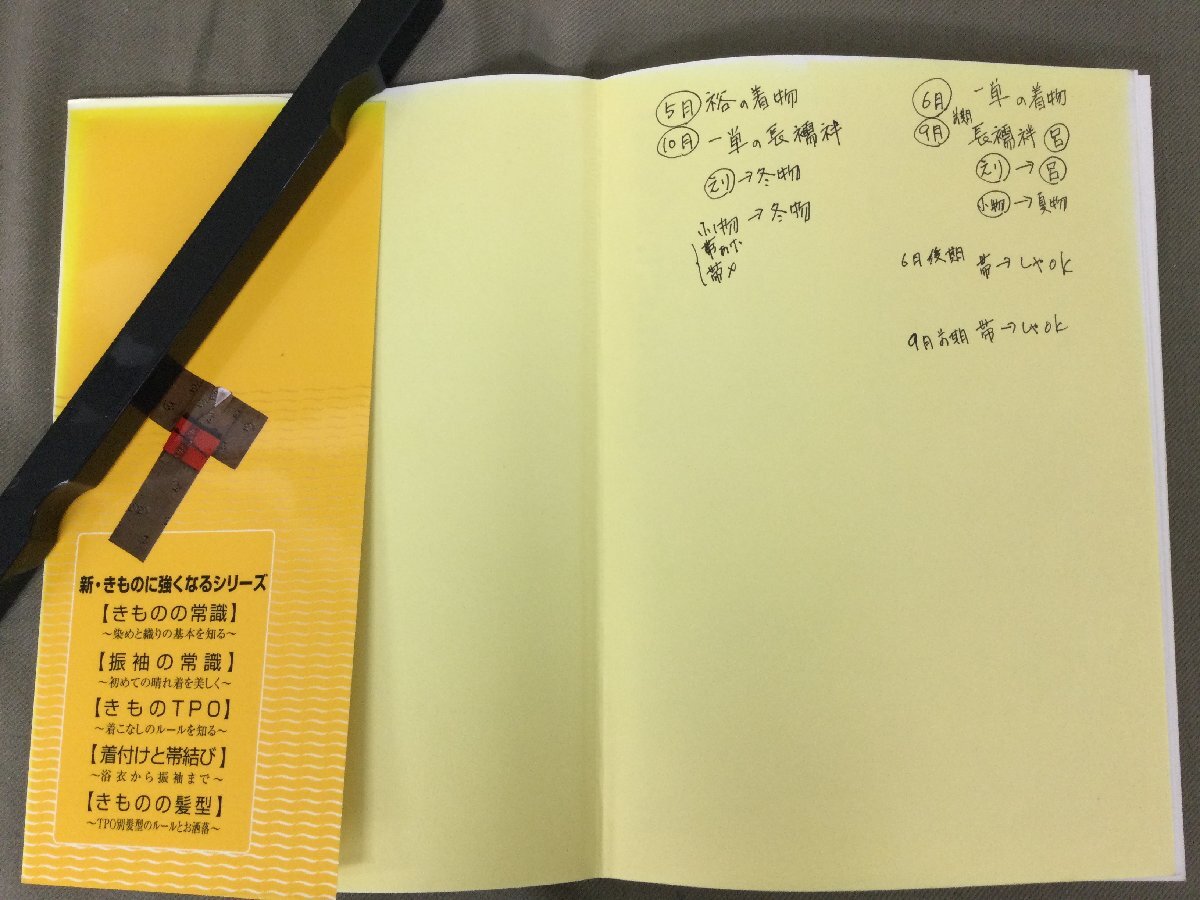 新・きものに強くなるシリーズ
【きものの常識】
〜染めと織りの基本を知る〜
【振袖の常識】
〜初めての晴れ着を美しく〜
【きものTPO】
〜着こなしのルールを知る〜
【着付けと帯結び】
〜浴衣から振袖まで〜
【きものの髪型】
〜TPO別髪型のルールとお洒落〜
5月 袷の着物
10月 一単の長襦袢
えり→冬物
小物→冬物
帯あげ
帯〆
6月 一単の着物
9月 後期 長襦袢 呂
えり→呂
小物→夏物
6月後期 帯→しゃok
9月前期 帯→しゃok